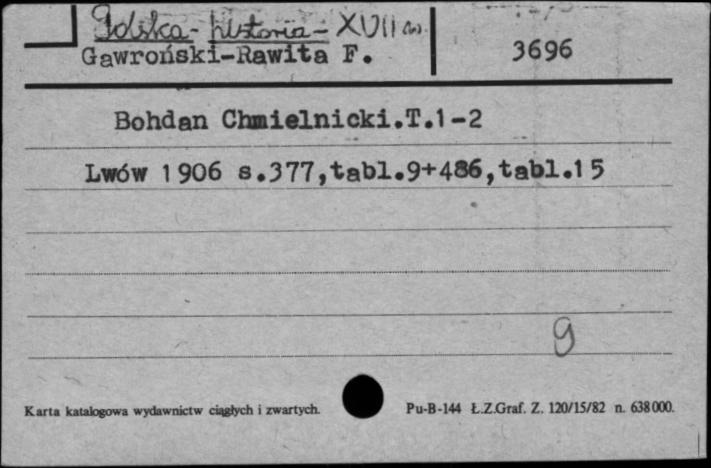 Polska - historia - XVII w.
Gawroński-Rawita F.
3696
Bohdan Chmielnicki.T.1-2
Lwów 1906 s.377,tabl.9+486,tabl.15
9
Karta katalogowa wydawnictw ciągłych i zwartych.
Pu-B-144 Ł.Z.Graf. Z. 120/15/82 n. 638000.